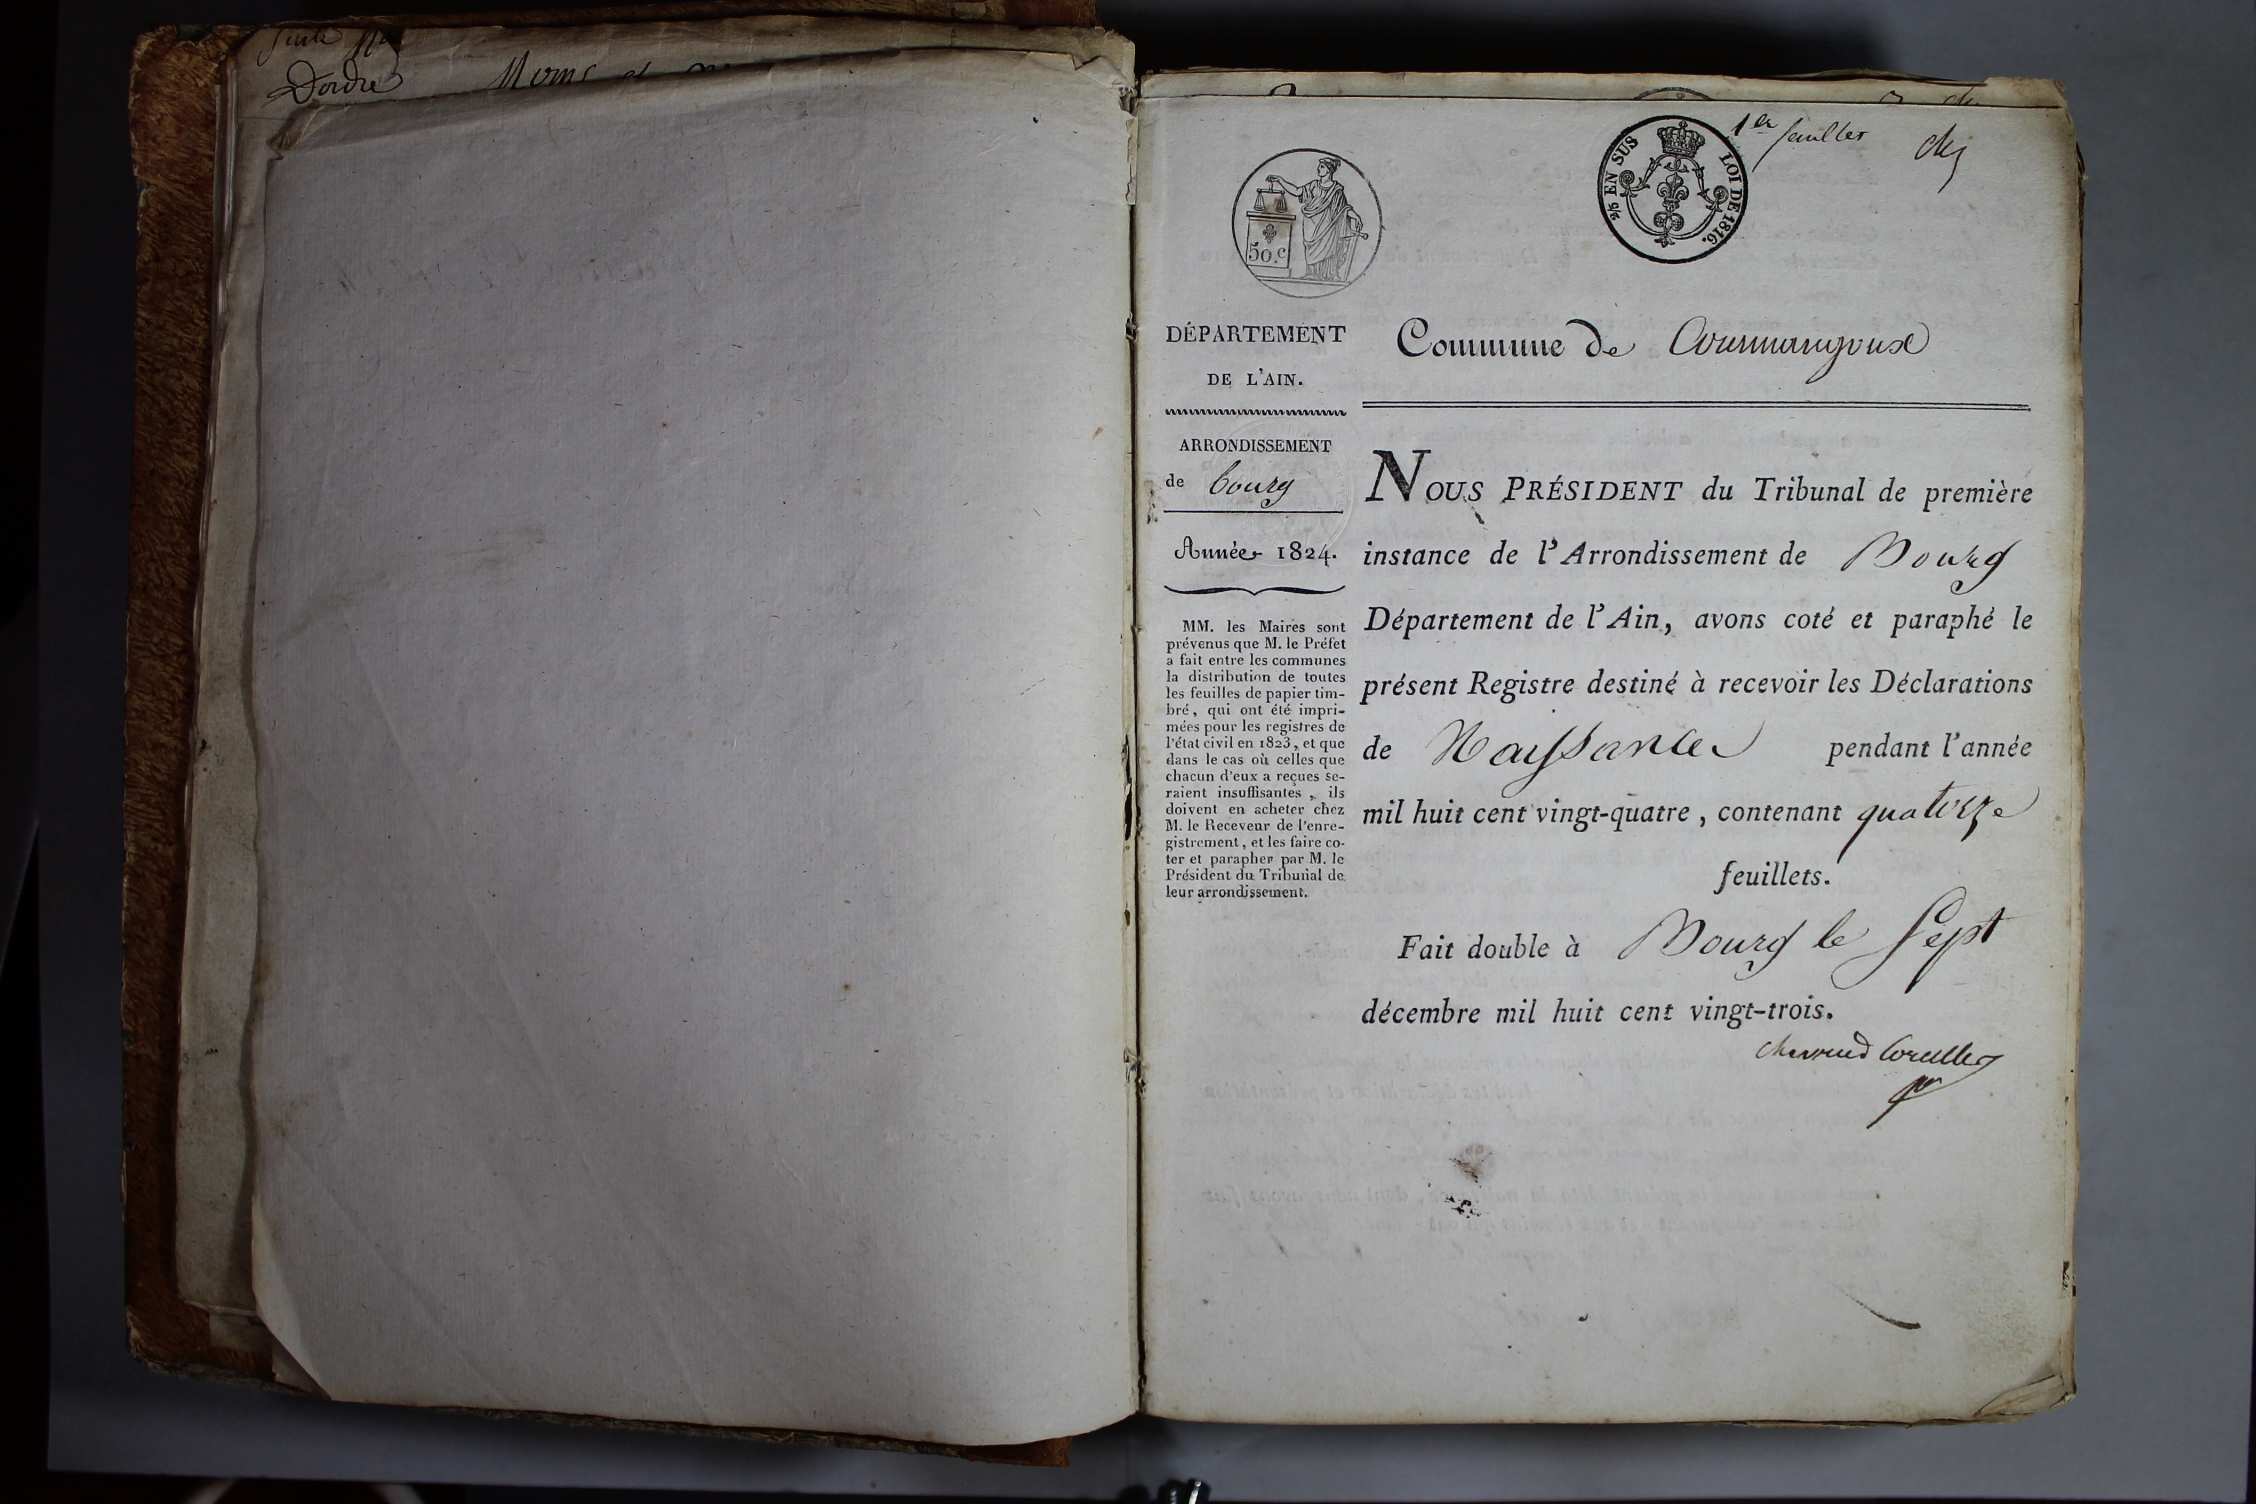 Dordre
Noms et
1er feuillet
2/5 EN SUS LOI DE 1816.
50.c
DÉPARTEMENT
DE L'AIN.
ARRONDISSEMENT
de bourg
Année 1824.
MM. les Maires sont
prévenus que M. le Préfet
a fait entre les communes
la distribution de toutes
les feuilles de papier tim-
bré, qui ont été impri-
mées pour les registres de
l'état civil en 1823, et que
dans le cas où celles que
chacun d'eux a reçues se-
raient insuffisantes, ils
doivent en acheter chez
M. le Receveur de l'enre-
gistrement, et les faire co-
ter et parapher par M. le
Président du Tribunal de
leur arrondissement.
Commune de Courmangoux
NOUS PRÉSIDENT du Tribunal de première
instance de l'Arrondissement de Bourg
Département de l'Ain, avons coté et paraphé le
présent Registre destiné à recevoir les Déclarations
de Naissance pendant l'année
mil huit cent vingt-quatre, contenant quatorze
feuillets.
Fait double à Bourg le Sept
décembre mil huit cent vingt-trois.